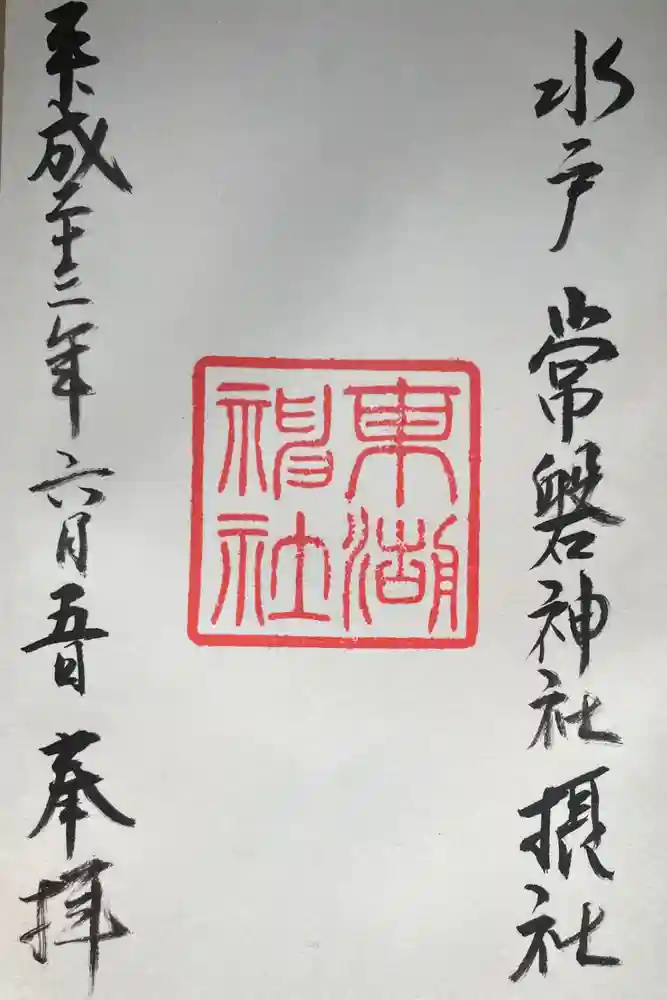 水戸 常磐神社 摂社
東湖
神社
平成二十三年 六月五日 奉拝